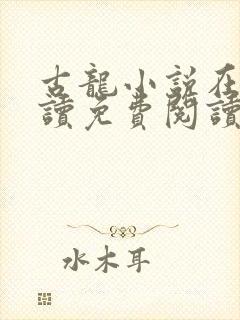 古龍小說在
讀免費閱讀
水木耳